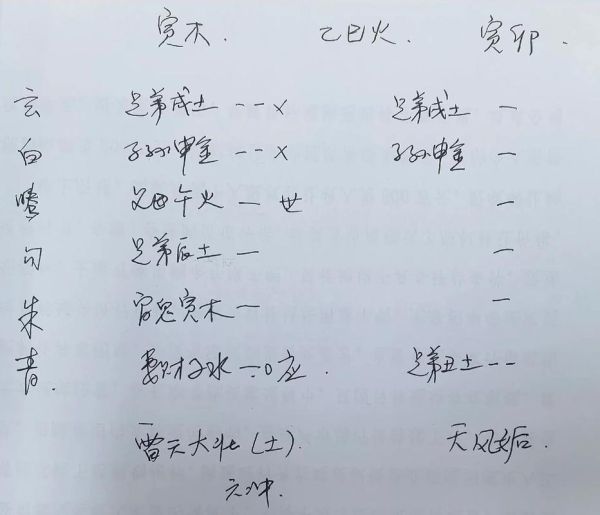 寅木. 乙巳火. 寅卯.
玄 兄弟戌土 -- x 兄弟戌土 —
白 子孙申金 -- x 子孙申金 —
螣 父母午火 — 世 —
勾 兄弟辰土 — —
朱 官鬼寅木 — —
青. 妻财子水 — o 应. 兄弟丑土 --
雷天大壮 (土). 天风姤.
六冲.